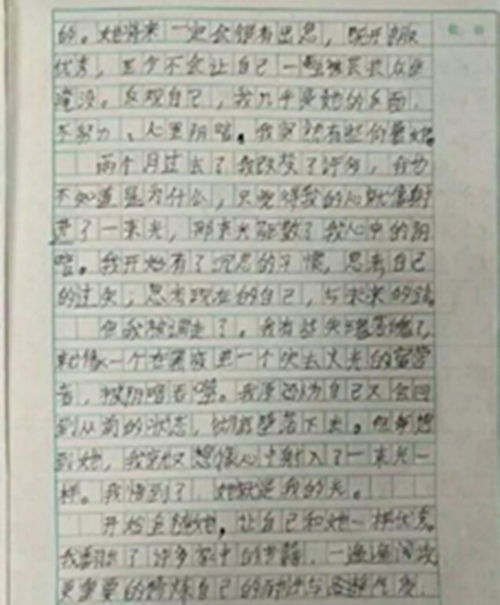 的。她将来一定会很有出息，既开朗
优秀，至少不会让自己一
淹没。反观自己，我几乎是她的反面，
不努力、心里阴暗。我突然有些
两个月过去了我改变了许多，我也
不知道是为什么，只觉得我的心就像射
进了一束光，那束光驱散了我心中的阴
暗。我开始有了沉思的习惯，思考自己
的过失，思考现在的自己，与未来的
但我被调走了。我有些失魂落魄了，
就像一个在黑夜里一个失去火光的
者，被阴暗吞噬。我原以为自己又会回
到从前的状态，彻底堕落下去。但每想
到她，我就又想像心中射入了一束光一
样。我悟到了，她就是我的光。
开始追随她，让自己和她一样优秀。
我翻出了许多家中的书籍，一遍遍阅读
更重要的修炼自己的